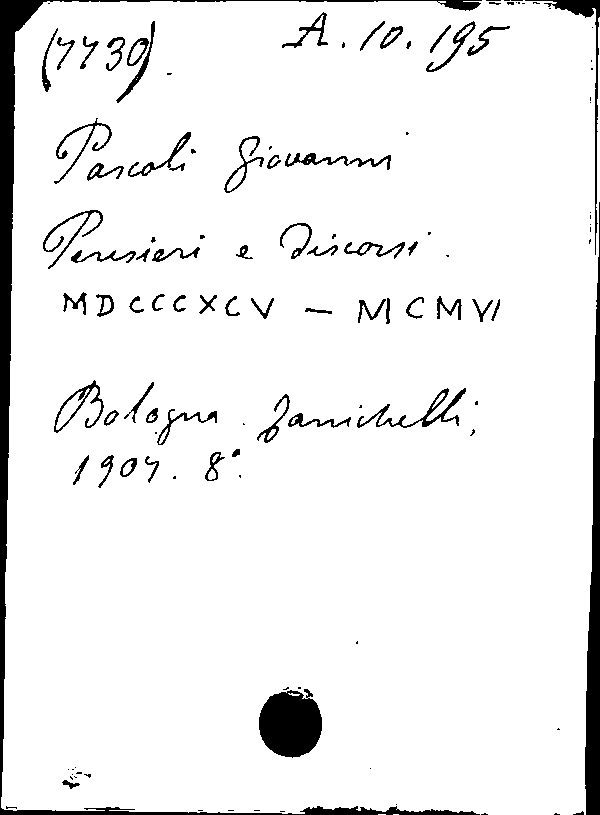 (7730). A.10.195
Pascoli Giovanni
Pensieri e Discorsi.
MDCCCXCV – MCMVI
Bologna. Zanichelli,
1907. 8°.